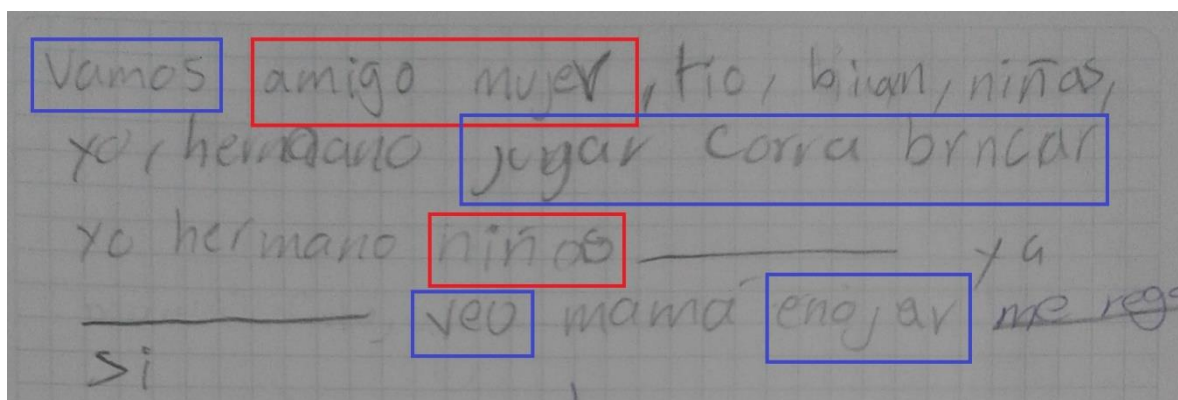 Vamos amigo mujer, tio, bian, niñas,
yo, hermano jugar corra brncar
yo hermano niños ya
veo mamá enojar me reg
si